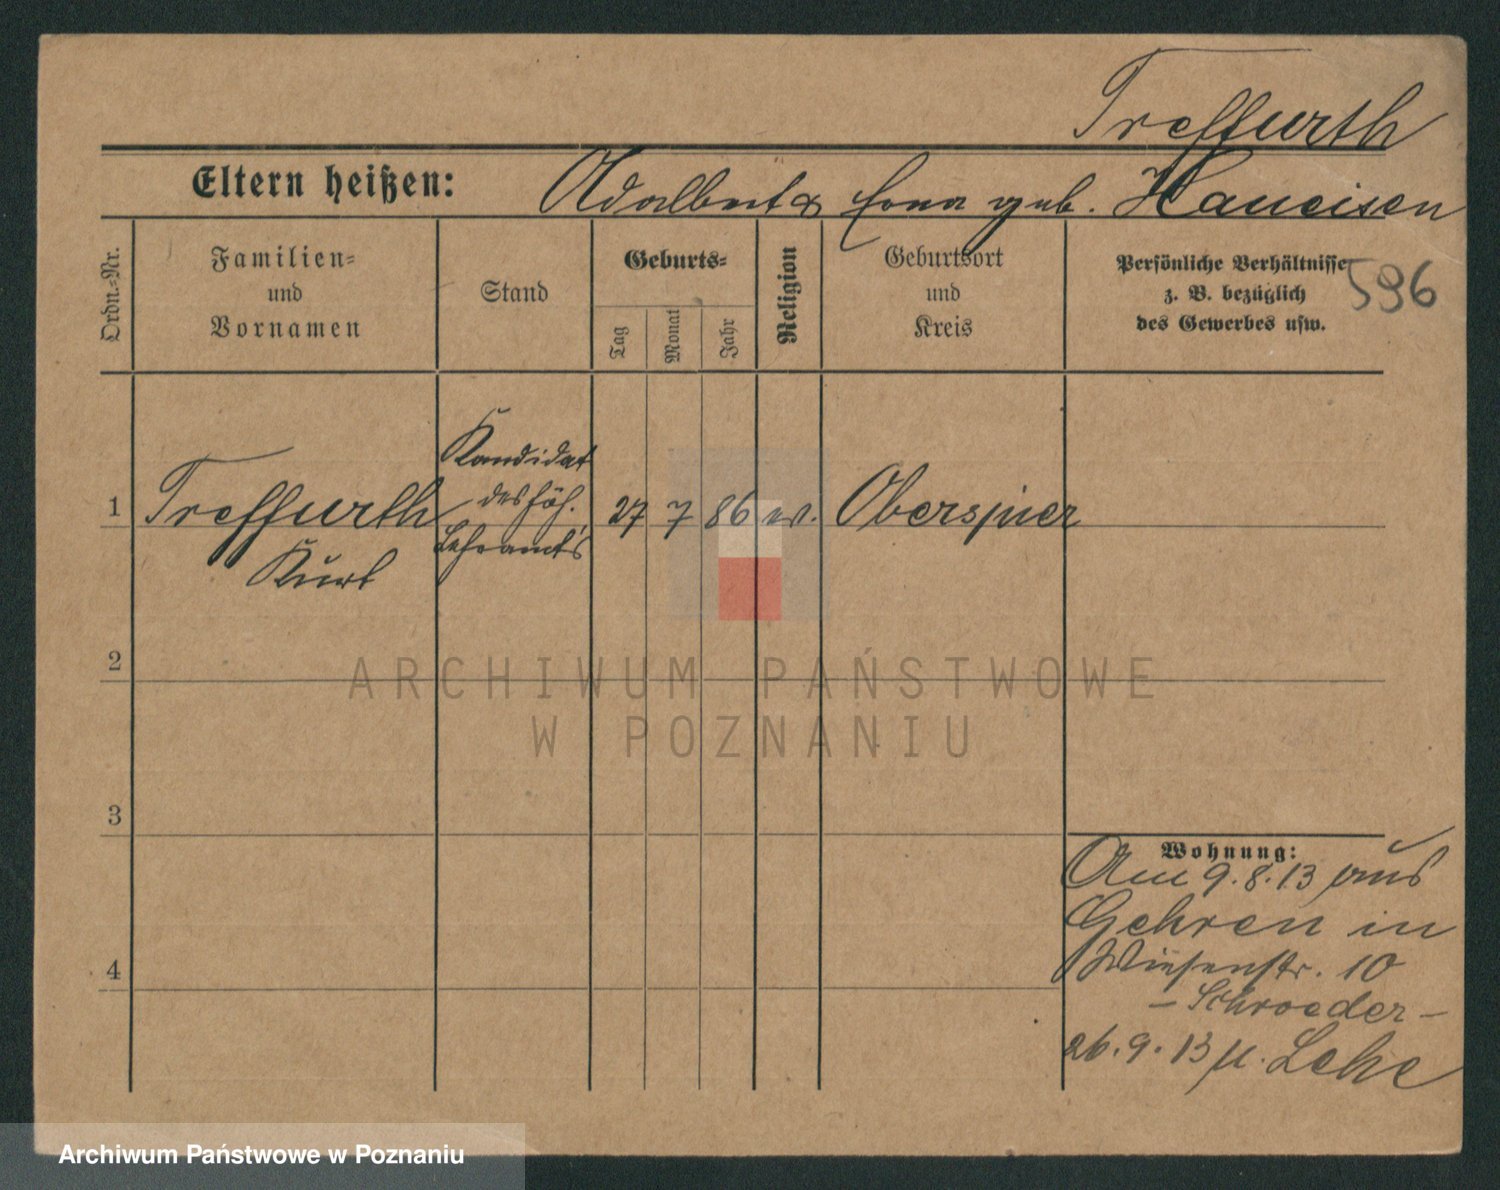 Treffurth
Eltern heißen: Adalbert & Erna geb. Haueisen
Ordn.-Nr.
Familien-
und
Vornamen
Stand
Geburts-
Tag
Monat
Jahr
Religion
Geburtsort
und
Kreis
Persönliche Verhältnisse
z. B. bezüglich
des Gewerbes usw.
596
1 Treffurth
Kurt
Kandidat
des höh.
Lehramts
27 7 86 ev. Oberspier
2
3
4
ARCHIWUM PAŃSTWOWE
W POZNANIU
Wohnung:
Am 9.8.13 aus
Gehren in
Wiesenstr. 10
- Schroeder -
26.9.13 n. Lehe
Archiwum Państwowe w Poznaniu